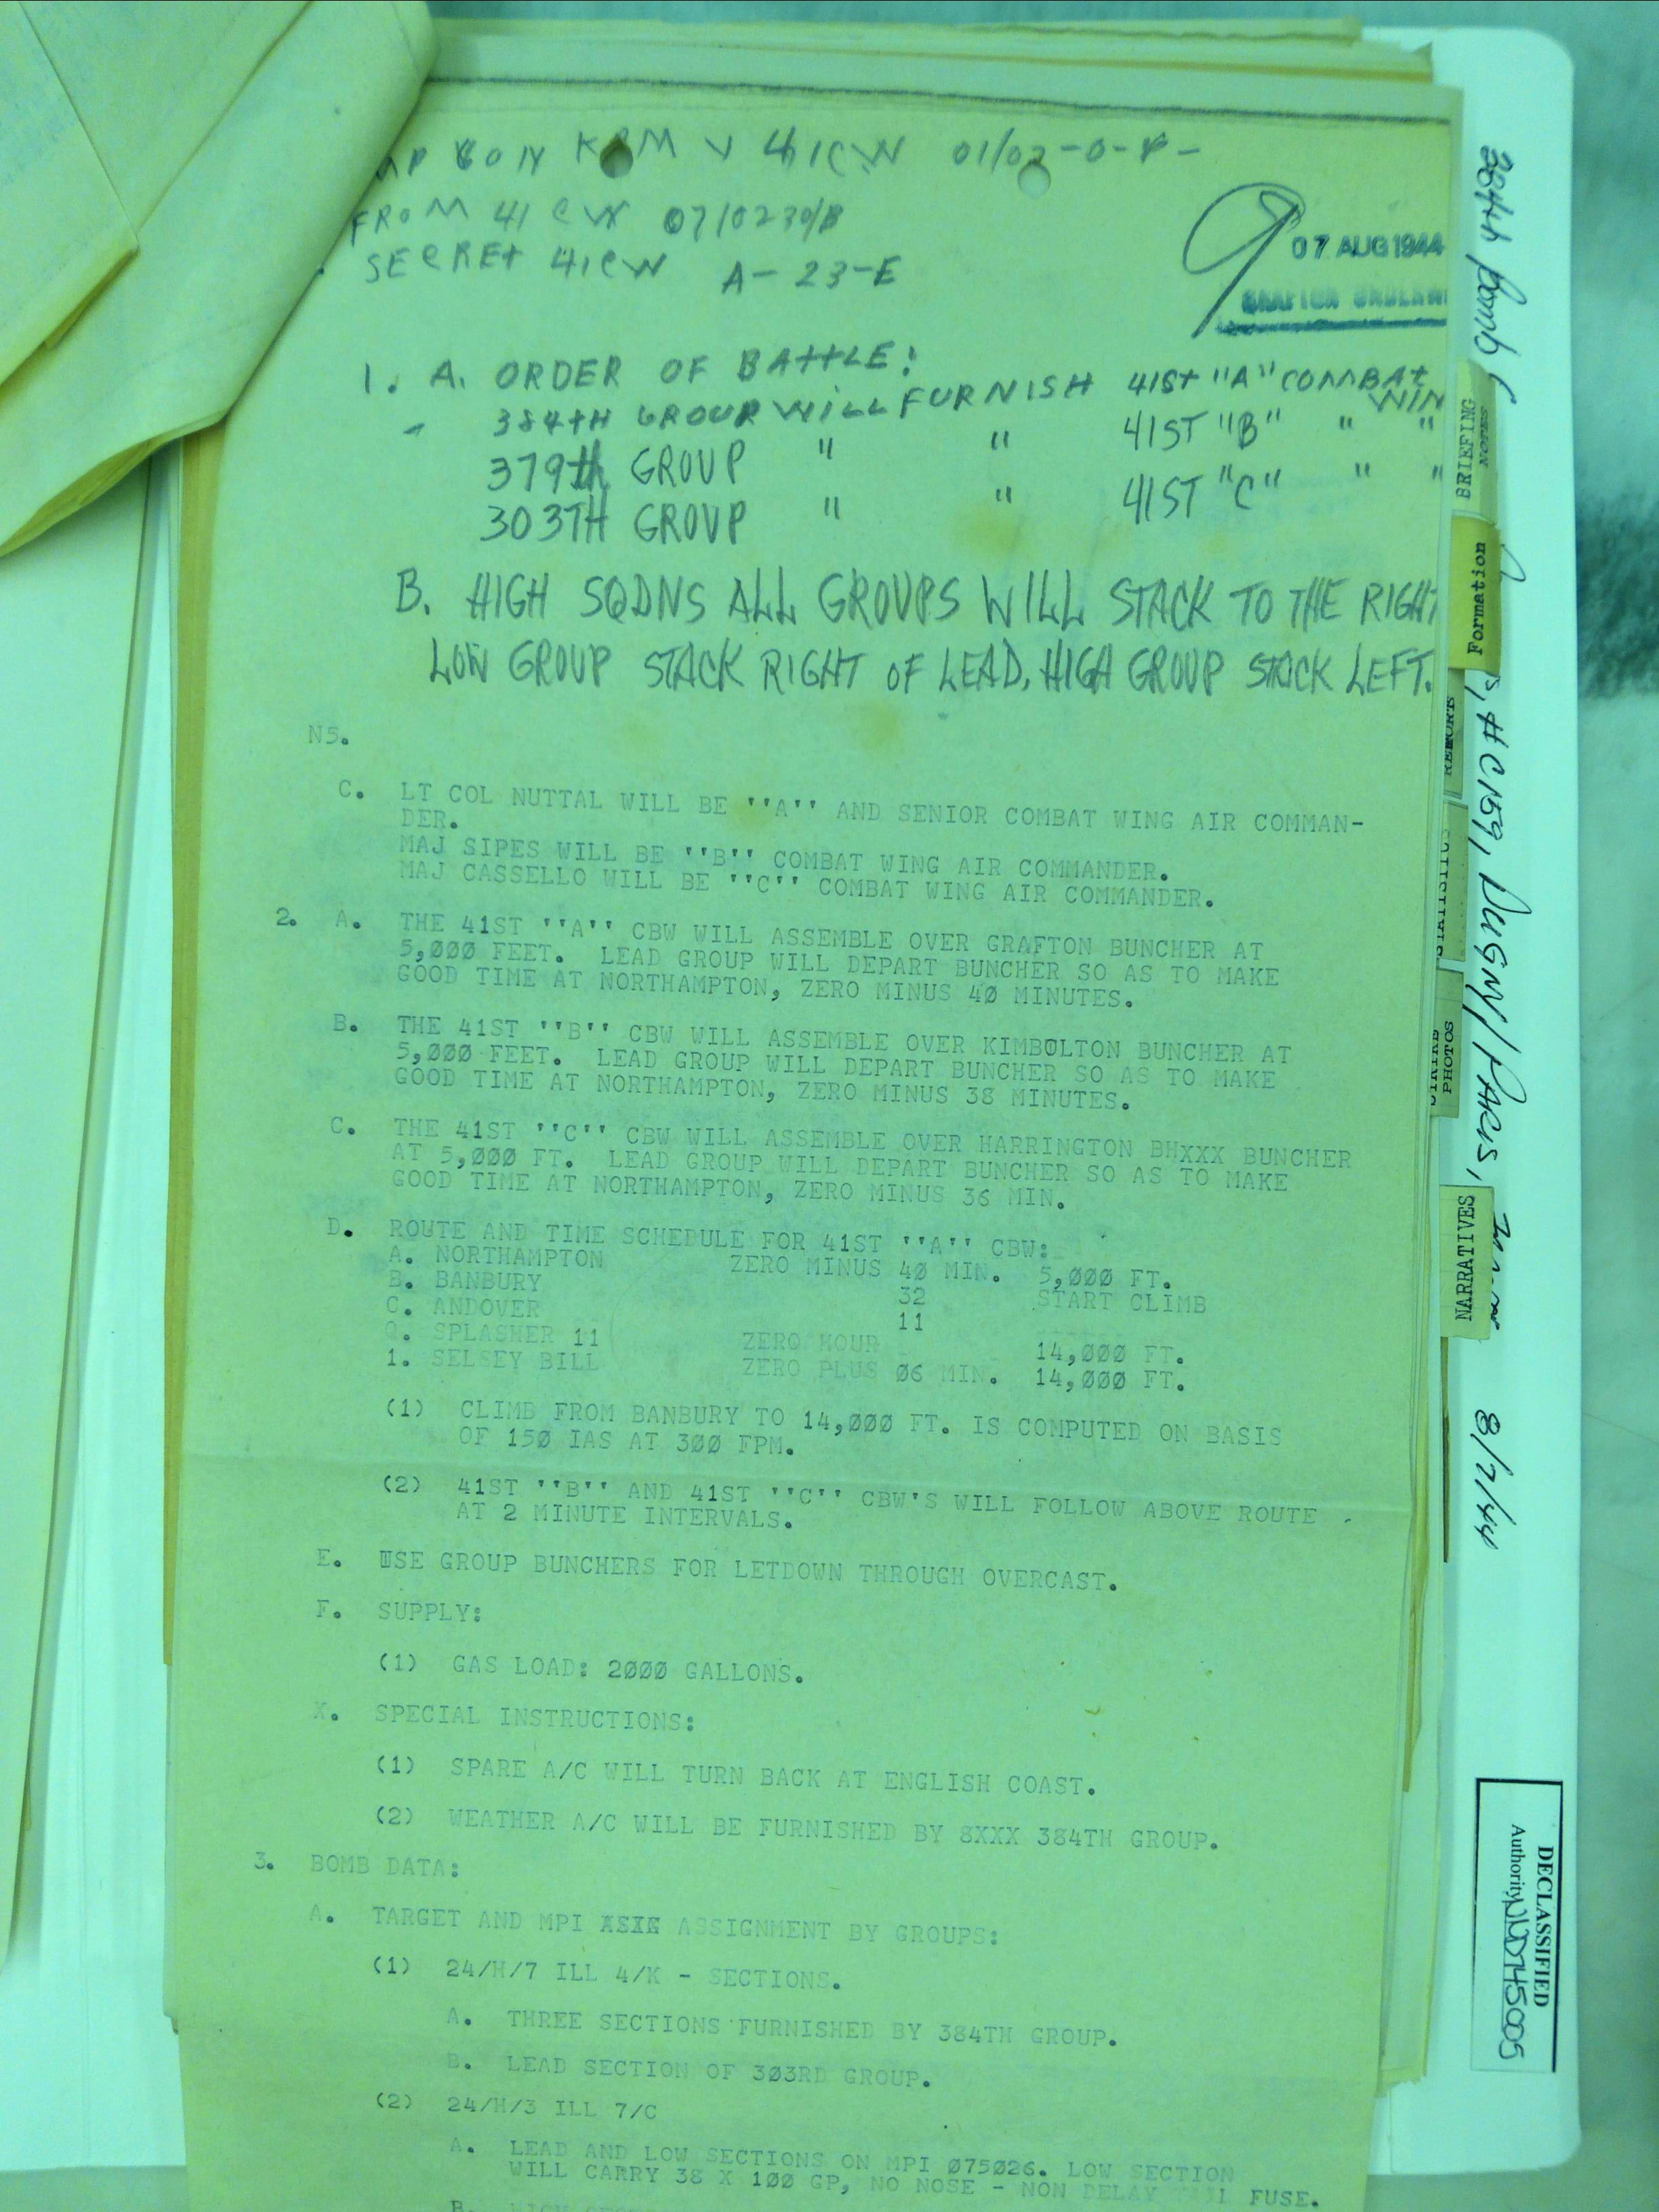 MP BON KRM V 41CW 01/02-O-P-
FROM 41 CW 07/0230/B
SECRET 41CW A-23-E
07 AUG 1944
1. A. ORDER OF BATTLE:
- 384TH GROUP WILL FURNISH 41ST "A" COMBAT WIN
379th GROUP " " 41ST "B" " "
303TH GROUP " " 41ST "C" " "
B. HIGH SQDNS ALL GROUPS WILL STACK TO THE RIGHT
LOW GROUP STACK RIGHT OF LEAD, HIGH GROUP STACK LEFT.
N5.
C. LT COL NUTTAL WILL BE ''A'' AND SENIOR COMBAT WING AIR COMMAN-
DER.
MAJ SIPES WILL BE ''B'' COMBAT WING AIR COMMANDER.
MAJ CASSELLO WILL BE ''C'' COMBAT WING AIR COMMANDER.
2. A. THE 41ST ''A'' CBW WILL ASSEMBLE OVER GRAFTON BUNCHER AT
5,000 FEET. LEAD GROUP WILL DEPART BUNCHER SO AS TO MAKE
GOOD TIME AT NORTHAMPTON, ZERO MINUS 40 MINUTES.
B. THE 41ST ''B'' CBW WILL ASSEMBLE OVER KIMBOLTON BUNCHER AT
5,000 FEET. LEAD GROUP WILL DEPART BUNCHER SO AS TO MAKE
GOOD TIME AT NORTHAMPTON, ZERO MINUS 38 MINUTES.
C. THE 41ST ''C'' CBW WILL ASSEMBLE OVER HARRINGTON BHXXX BUNCHER
AT 5,000 FT. LEAD GROUP WILL DEPART BUNCHER SO AS TO MAKE
GOOD TIME AT NORTHAMPTON, ZERO MINUS 36 MIN.
D. ROUTE AND TIME SCHEDULE FOR 41ST ''A'' CBW:
A. NORTHAMPTON ZERO MINUS 40 MIN. 5,000 FT.
B. BANBURY 32 START CLIMB
C. ANDOVER 11
0. SPLASHER 11 ZERO HOUR 14,000 FT.
1. SELSEY BILL ZERO PLUS 06 MIN. 14,000 FT.
(1) CLIMB FROM BANBURY TO 14,000 FT. IS COMPUTED ON BASIS
OF 150 IAS AT 300 FPM.
(2) 41ST ''B'' AND 41ST ''C'' CBW'S WILL FOLLOW ABOVE ROUTE
AT 2 MINUTE INTERVALS.
E. USE GROUP BUNCHERS FOR LETDOWN THROUGH OVERCAST.
F. SUPPLY:
(1) GAS LOAD: 2000 GALLONS.
X. SPECIAL INSTRUCTIONS:
(1) SPARE A/C WILL TURN BACK AT ENGLISH COAST.
(2) WEATHER A/C WILL BE FURNISHED BY 8XXX 384TH GROUP.
3. BOMB DATA:
A. TARGET AND MPI ASSIGNMENT BY GROUPS:
(1) 24/H/7 ILL 4/K - SECTIONS.
A. THREE SECTIONS FURNISHED BY 384TH GROUP.
B. LEAD SECTION OF 303RD GROUP.
(2) 24/H/3 ILL 7/C
A. LEAD AND LOW SECTIONS ON MPI 075026. LOW SECTION
WILL CARRY 38 X 100 GP, NO NOSE - NON DELAY TAIL FUSE.
B. HIGH
384th Bomb G
#C159, Dugny/Paris,
8/7/44
BRIEFING NOTES
Formation
REPORTS
STATISTICS
STRIKE PHOTOS
NARRATIVES
DECLASSIFIED
Authority NND745005